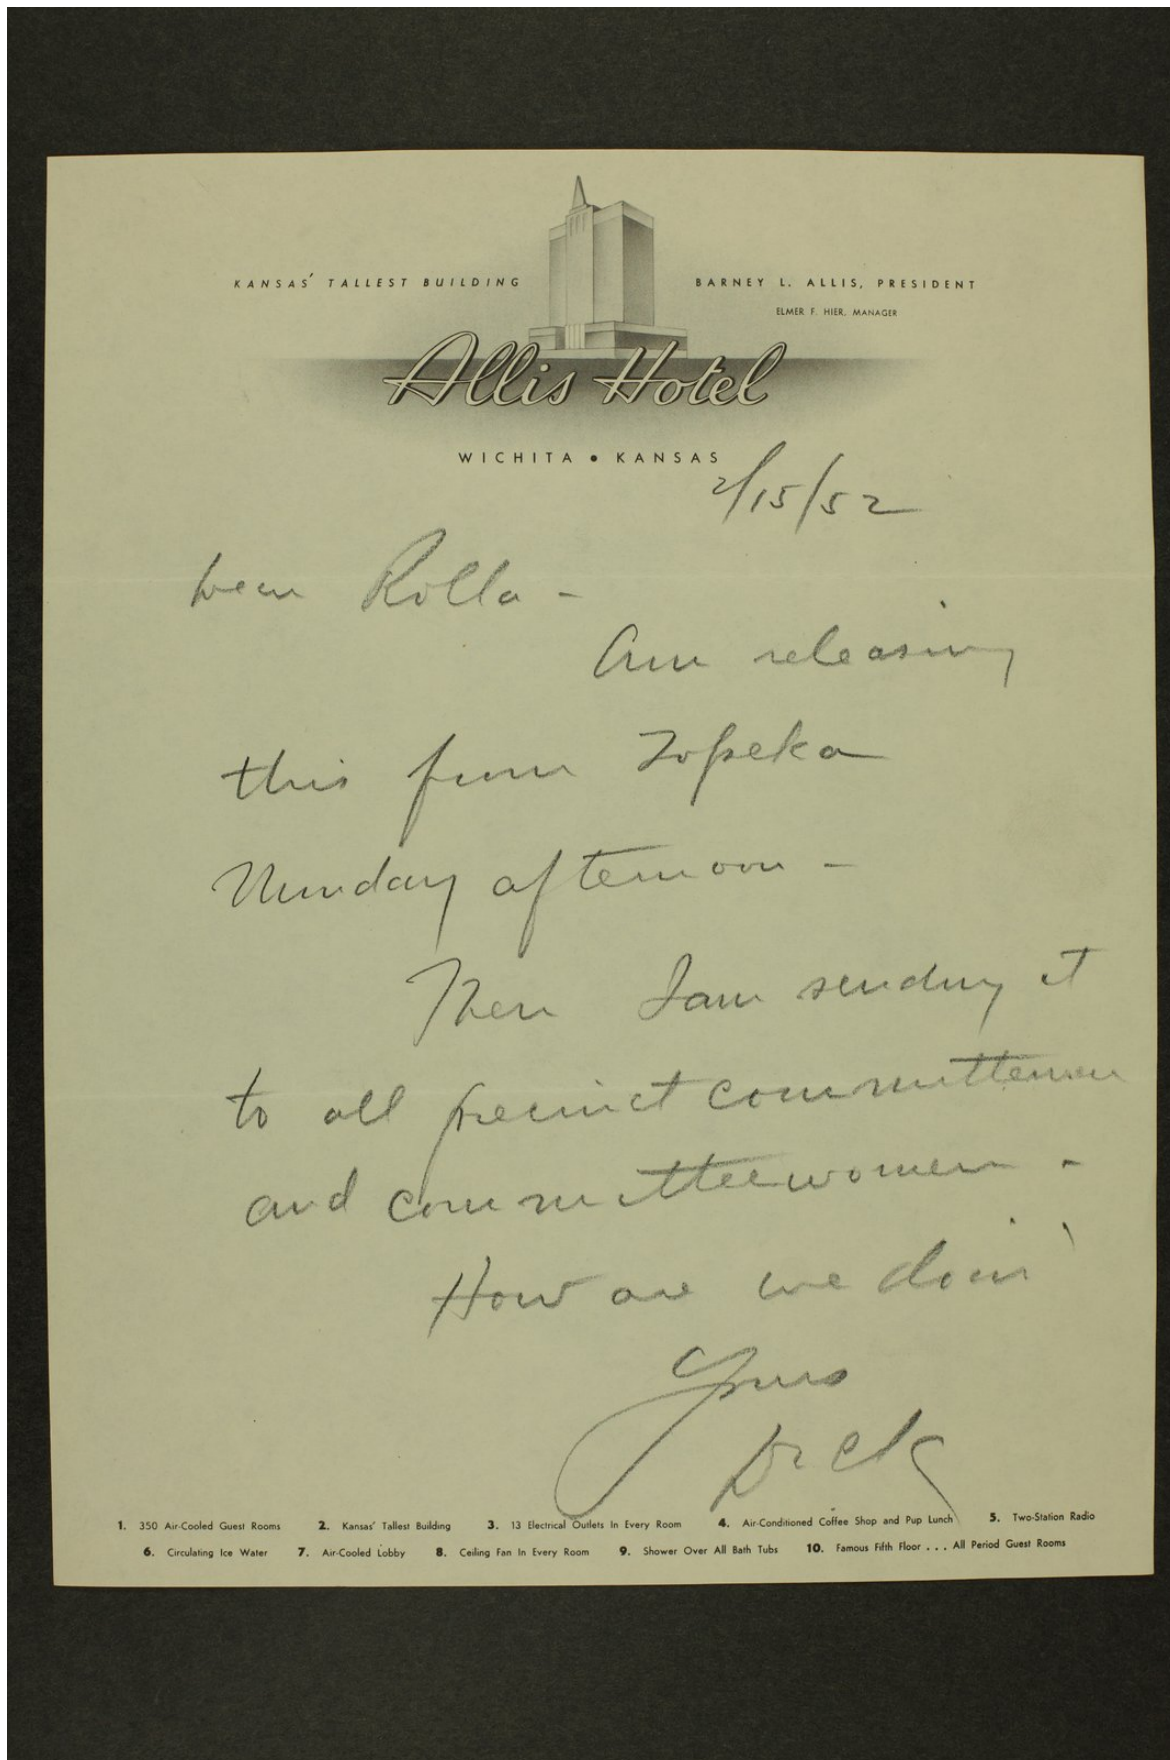 KANSAS' TALLEST BUILDING
BARNEY L. ALLIS, PRESIDENT
ELMER F. HIER, MANAGER
Allis Hotel
WICHITA • KANSAS
2/15/52
Dear Rolla -
Am releasing
this from Topeka
Monday afternoon -
Then I am sending it
to all precinct committemen
and committeewomen -
How are we doin'
Yours
Dick
1. 350 Air-Cooled Guest Rooms 2. Kansas' Tallest Building 3. 13 Electrical Outlets In Every Room 4. Air-Conditioned Coffee Shop and Pup Lunch 5. Two-Station Radio
6. Circulating Ice Water 7. Air-Cooled Lobby 8. Ceiling Fan In Every Room 9. Shower Over All Bath Tubs 10. Famous Fifth Floor . . . All Period Guest Rooms